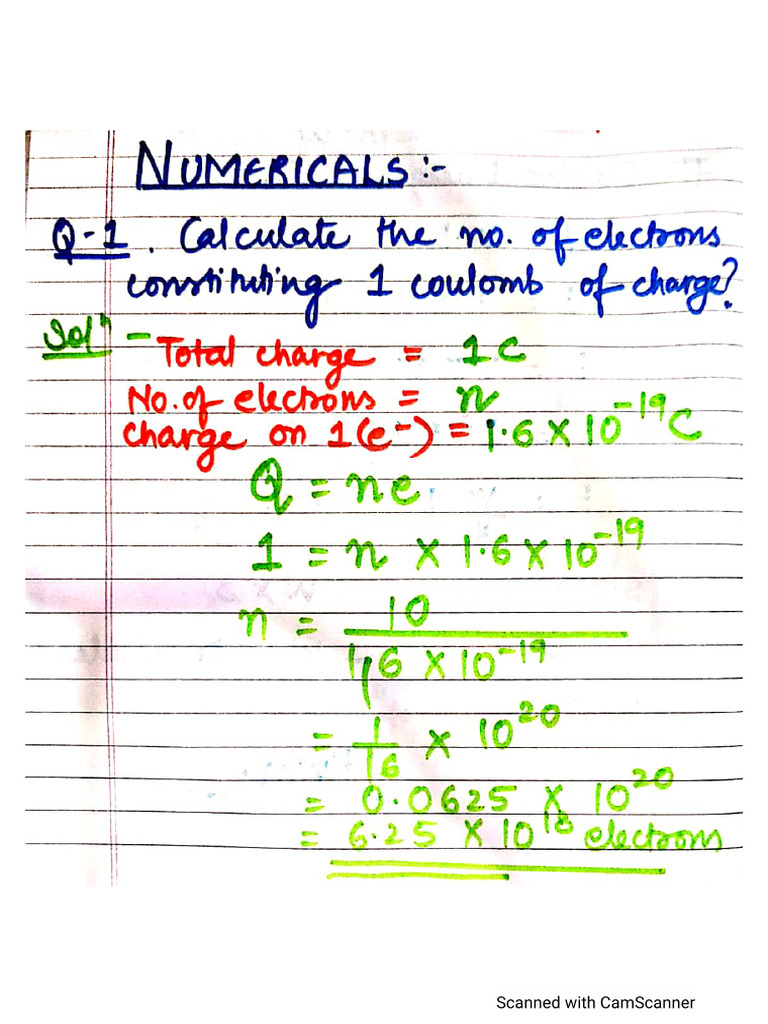 NUMERICALS:-
Q-1. Calculate the no. of electrons
constituting 1 coulomb of charge?
Solⁿ - Total charge = 1C
No. of electrons = n
charge on 1(e⁻) = 1.6 × 10⁻¹⁹ C
Q = ne
1 = n × 1.6 × 10⁻¹⁹
n = 10
16 × 10⁻¹⁹
= 1/16 × 10²⁰
= 0.0625 × 10²⁰
= 6.25 × 10¹⁸ electrons
Scanned with CamScanner